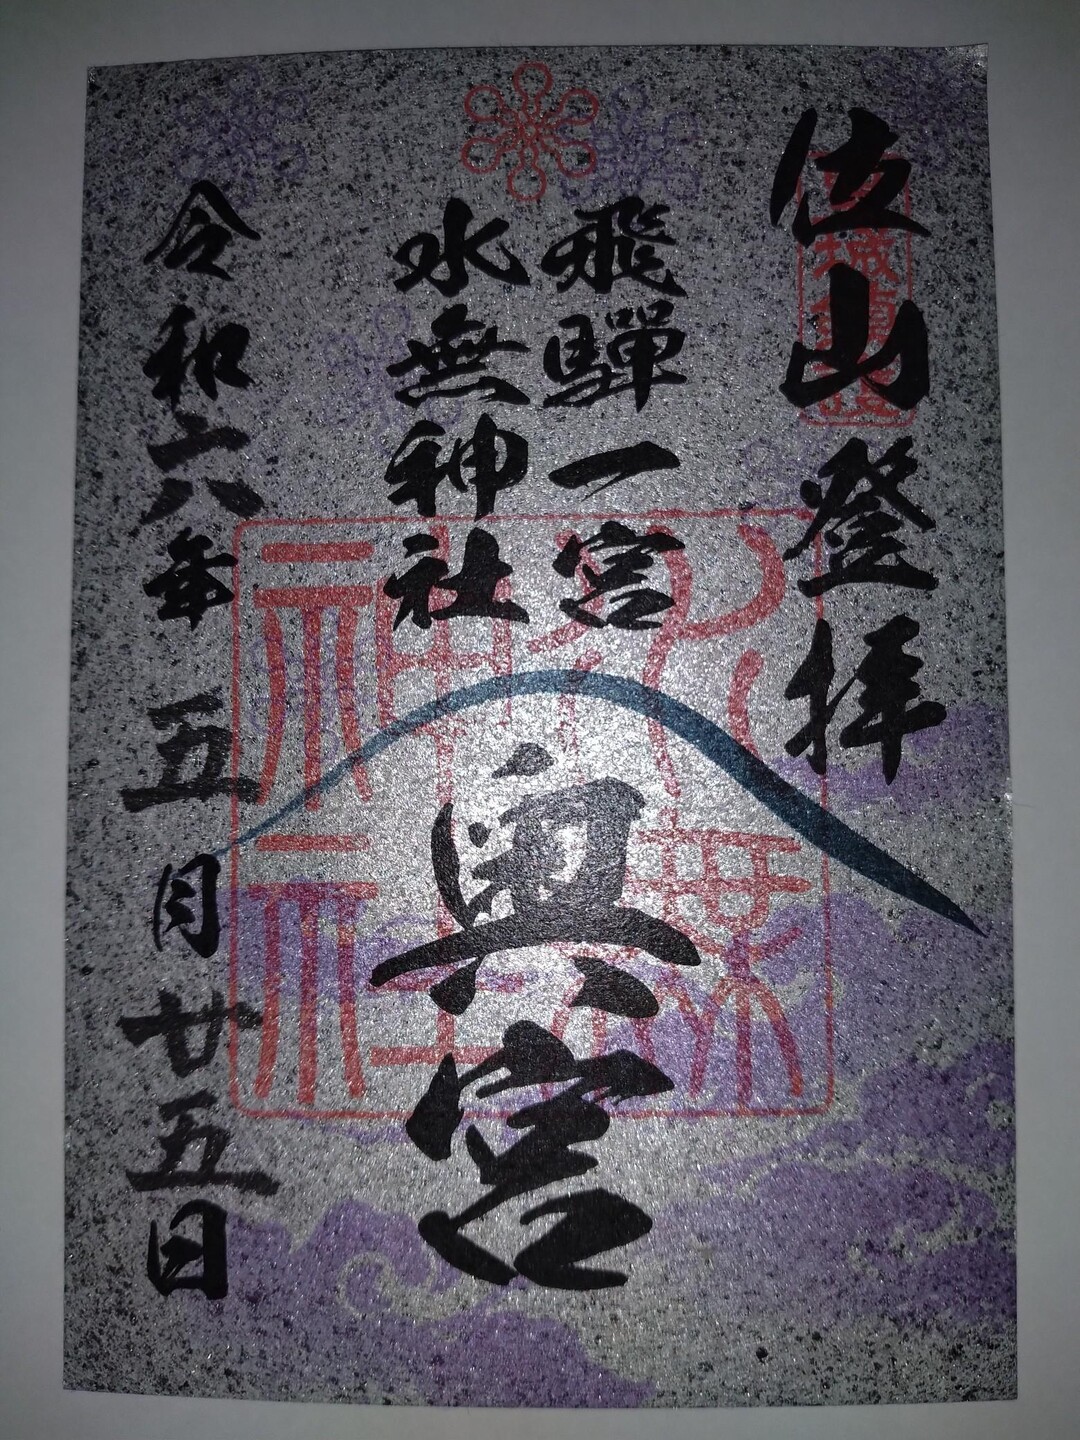 位山登拝
飛驒一宮
水無神社
奥宮
令和六年五月廿五日
水無神社